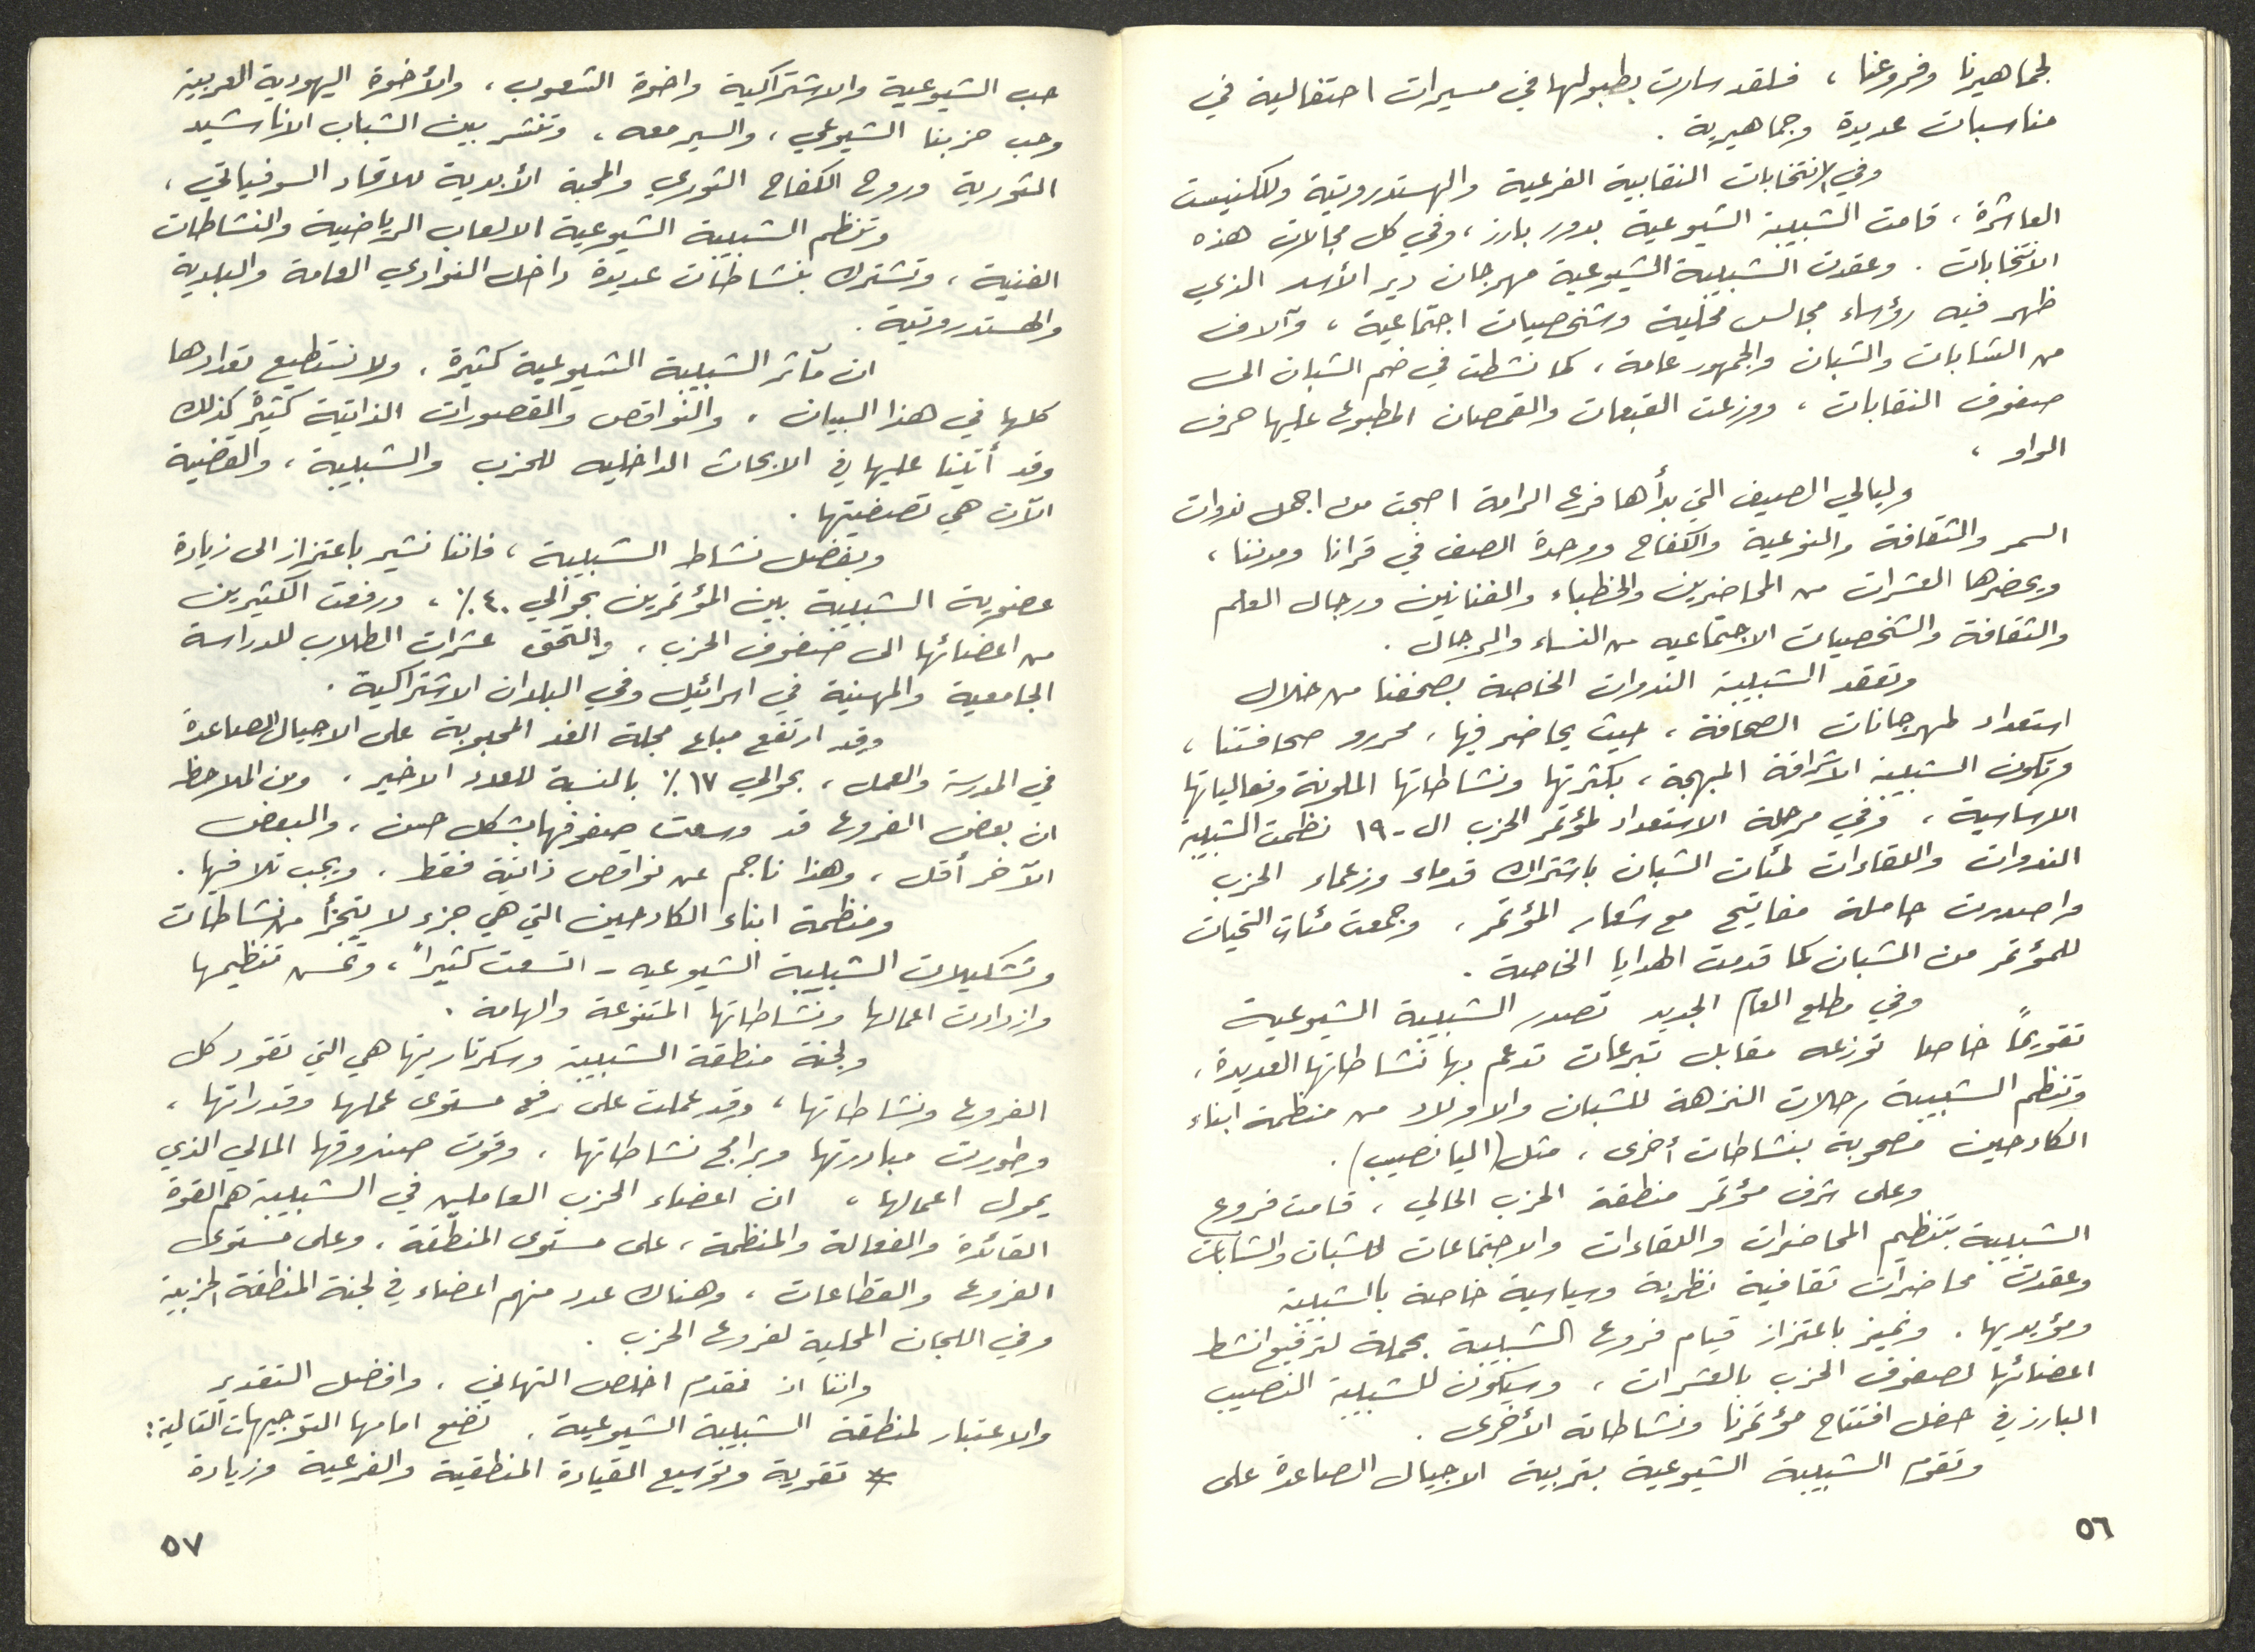 لجماهيرنا وفروعنا، فلقد سارت بطبولها في مسيرات احتفالية في
مناسبات عديدة وجماهيرية.
وفي الانتخابات النقابية الفرعية والهستدروتية وللكنيست
العاشرة، قامت الشبيبة الشيوعية بدور بارز، وفي كل مجالات هذه
الانتخابات. وعقدت الشبيبة الشيوعية مهرجان دير الأسد الذي
ظهر فيه رؤساء مجالس محلية وشخصيات اجتماعية، وآلاف
من الشابات والشبان والجمهور عامة، كما نشطت في ضم الشبان الى
صفوف النقابات، ووزعت القبعات والقمصان المطبوع عليها حرف
الواو،
وليالي الصيف التي بدأها فرع الرامة اصبحت من اجمل ندوات
السمر والثقافة والتوعية والكفاح ووحدة الصف في قرانا ومدننا،
ويحضرها العشرات من المحاضرين والخطباء والفنانين ورجال العلم
والثقافة والشخصيات الاجتماعيه من النساء والرجال.
وتعقد الشبيبة الندوات الخاصة بصحفنا من خلال
استعداد لمهرجانات الصحافة، حيث يحاضر فيها، محررو صحافتنا،
وتكون الشبيبة الاشراقة المبهجة، بكثرتها ونشاطاتها الملونة وفعالياتها
الاساسية، وفي مرحلة الاستعداد لمؤتمر الحزب ال-١٩ نظمت الشبيبة
الندوات واللقاءات لمئات الشبان باشتراك قدماء وزعماء الحزب
واصدرت حاملة مفاتيح مع شعار المؤتمر، وجمعت مئات التحيات
للمؤتمر من الشبان كما قدمت الهدايا الخاصة.
وفي مطلع العام الجديد تصدر الشبيبة الشيوعية
تقويمًا خاصا توزعه مقابل تبرعات تدعم بها نشاطاتها العديدة،
وتنظم الشبيبة رحلات النزهة للشبان والاولاد من منظمة ابناء
الكادحين مصحوبة بنشاطات أخرى، مثل (اليانصيب).
وعلى شرف مؤتمر منطقة الحزب الحالي، قامت فروع
الشبيبة بتنظيم المحاضرات واللقاءات والاجتماعات للشبان والشابات
وعقدت محاضرات ثقافية نظرية وسياسية خاصة بالشبيبة
ومؤيديها. ونميز باعتزاز قيام فروع الشبيبة بحملة لترفيع انشط
اعضائها لصفوف الحزب بالعشرات، وسيكون للشبيبة النصيب
البارز في حفل افتتاح مؤتمرنا ونشاطاته الأخرى.
وتقوم الشبيبة الشيوعية بتربية الاجيال الصاعدة على
٥٦
حب الشيوعية والاشتراكية واخوة الشعوب، والأخوة اليهودية العربية
وحب حزبنا الشيوعي، والسير معه، وتنشر بين الشباب الاناشيد
الثورية وروح الكفاح الثوري والمحبة الأبدية للاتحاد السوفياتي،
وتنظم الشبيبة الشيوعية الالعاب الرياضية والنشاطات
الفنية، وتشترك بنشاطات عديدة داخل النوادي العامة والبلدية
والهستدروتية.
ان مآثر الشبيبة الشيوعية كثيرة، ولا نستطيع تعدادها
كلها في هذا البيان، والنواقص والقصورات الذاتية كثيرة كذلك
وقد أتينا عليها في الابحاث الداخليه للحزب والشبيبة، والقضية
الآن هي تصفيتها.
وبفضل نشاط الشبيبة، فاننا نشير باعتزاز الى زيادة
عضوية الشبيبة بين المؤتمرين بحوالي ٤٠٪، ورفعت الكثيرين
من اعضائها الى صفوف الحزب، والتحق عشرات الطلاب للدراسة
الجامعية والمهنية في اسرائيل وفي البلدان الاشتراكية.
وقد ارتفع مباع مجلة الغد المحبوبة على الاجيال الصاعدة
في المدرسة والعمل، بحوالي ١٧٪ بالنسبة للعدد الاخير، ومن الملاحظ
ان بعض الفروع قد وسعت صفوفها بشكل حسن، والبعض
الآخر أقل، وهذا ناجم عن نواقص ذاتية فقط، ويجب تلافيها.
ومنظمة ابناء الكادحين التي هي جزء لا يتجزأ من نشاطات
وتشكيلات الشبيبة الشيوعيه - اتسعت كثيراً، وتحسن تنظيمها
وازدادت اعمالها ونشاطاتها المتنوعة والهامة.
ولجنة منطقة الشبيبة وسكرتاريتها هي التي تقود كل
الفروع ونشاطاتها، وقد عملت على رفع مستوى عملها وقدراتها،
وطورت مبادرتها وبرامج نشاطاتها، وقوت صندوقها المالي الذي
يمول اعمالها، ان اعضاء الحزب العاملين في الشبيبة هم القوة
القائدة والفعالة والمنظمة، على مستوى المنطقة، وعلى مستوى
الفروع والقطاعات، وهناك عدد منهم اعضاء في لجنة المنطقة الحزبية
وفي اللجان المحلية لفروع الحزب.
واننا اذ نقدم اخلص التهاني، وافضل التقدير
والاعتبار لمنطقة الشبيبة الشيوعية، نضع امامها التوجيهات التالية:
* تقوية وتوسيع القيادة المنطقية والفرعية وزيادة
٥٧